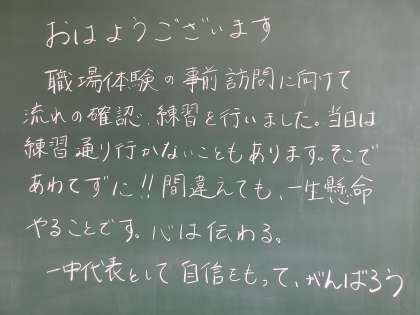 おはようございます
職場体験の事前訪問に向けて
流れの確認、練習を行いました。当日は
練習通り行かないこともあります。そこで
あわてずに!!間違えても、一生懸命
やることです。心は伝わる。
一中代表として自信をもって、がんばろう